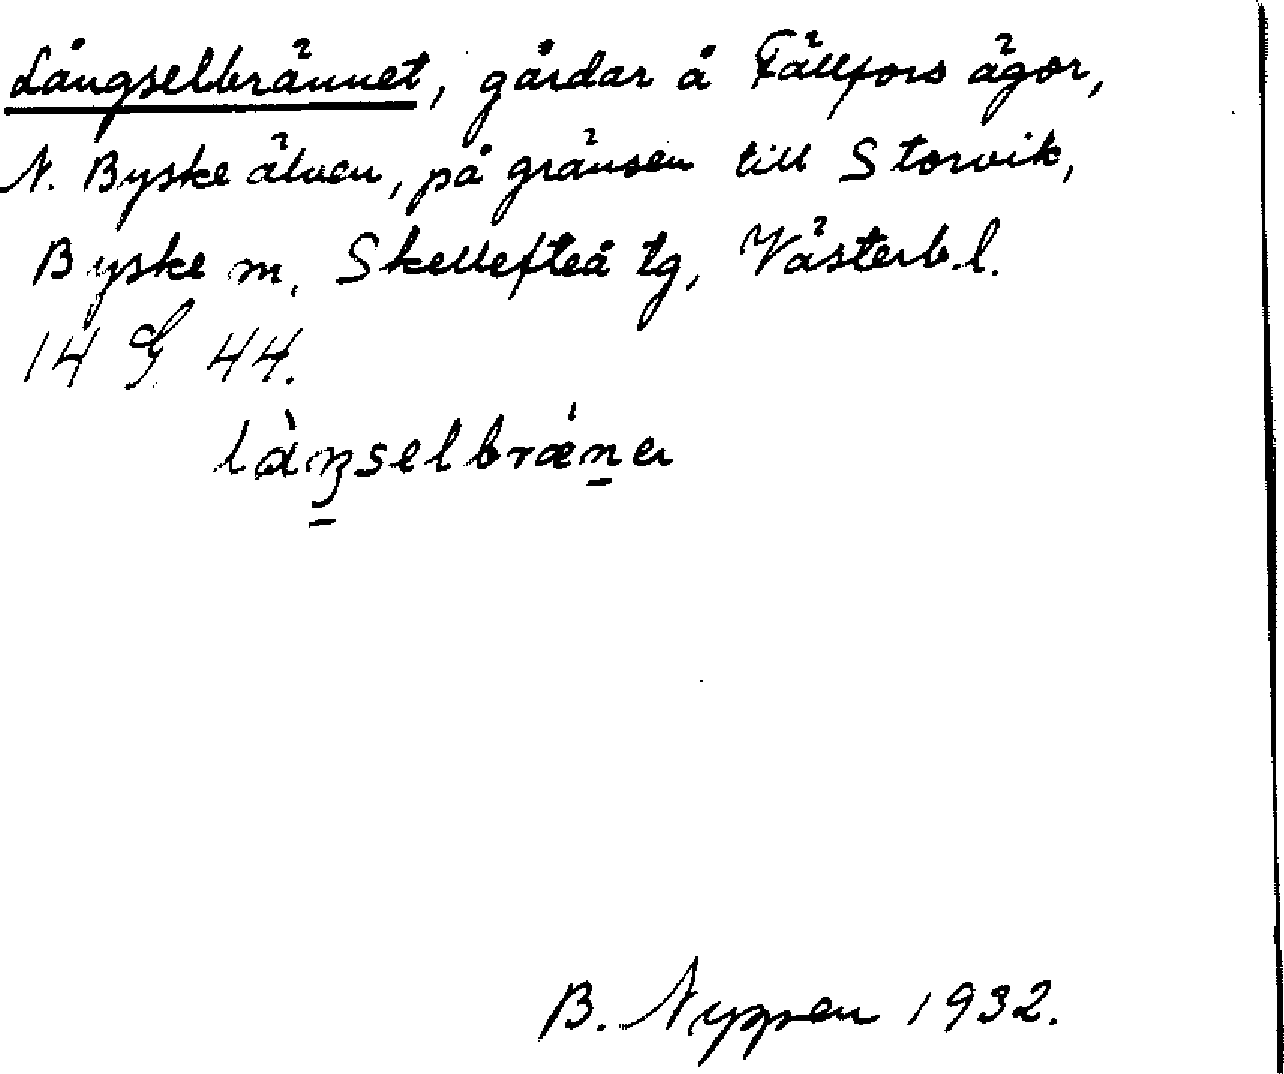 Långselbrännet, gårdar å Fällfors ägor,
N. Byske älven, på gränsen till Storvik,
Byske m. Skellefteå tg, Västerb l.
14 G 44.
B. Nyppen 1932.